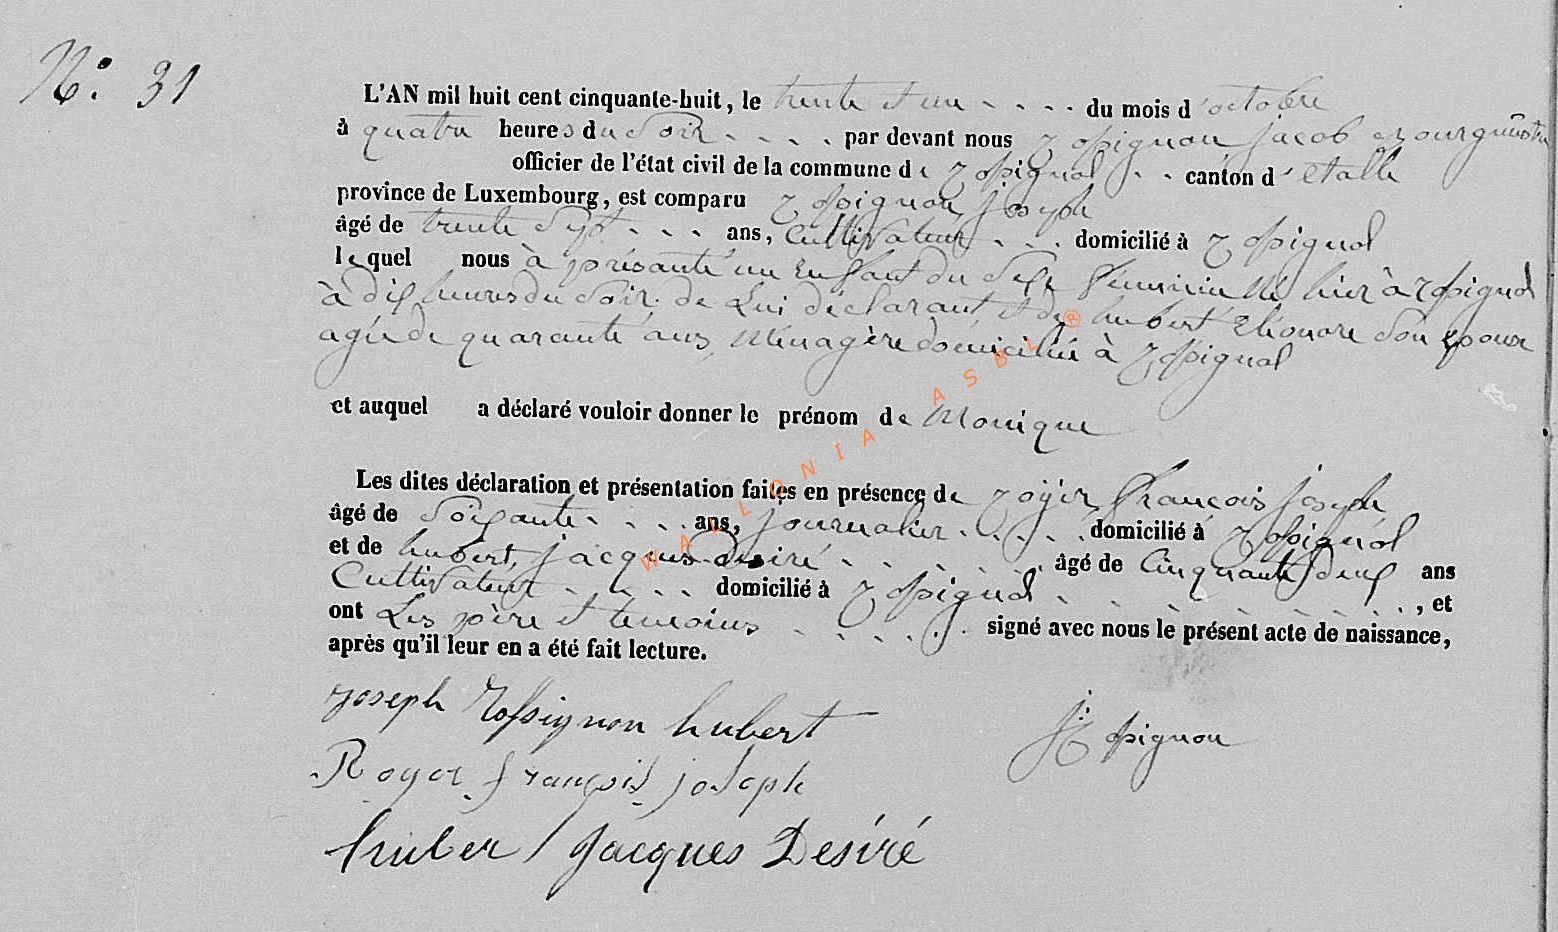 N° 31
L'AN mil huit cent cinquante-huit, le trente et un du mois d'octobre
à quatre heures du Soir par devant nous Rossignon jacob Bourgmestre
officier de l'état civil de la commune de Rossignol canton d'etalle
province de Luxembourg, est comparu Rossignon joseph
âgé de trente Sept ans, Cultivateur domicilié à Rossignol
lequel nous à présanté un Enfant du Sexe féminin né hier à Rossignol
à dix heures du Soir de Lui déclarant et de hubert Elionore Son epouse
agée de quarante ans, Ménagère domiciliée à Rossignol
et auquel a déclaré vouloir donner le prénom de Monique
Les dites déclaration et présentation faites en présence de Royer françois joseph
âgé de Soixante ans, journalier domicilié à Rossignol
et de hubert, jacques desiré âgé de Cinquante deux ans
Cultivateur domicilié à Rossignol, et
ont Les père et temoins signé avec nous le présent acte de naissance,
après qu'il leur en a été fait lecture.
joseph Rossignon hubert
J: Rossignon
Royer françois joseph
huber Jacques Désiré
WALLONIA ASBL ®